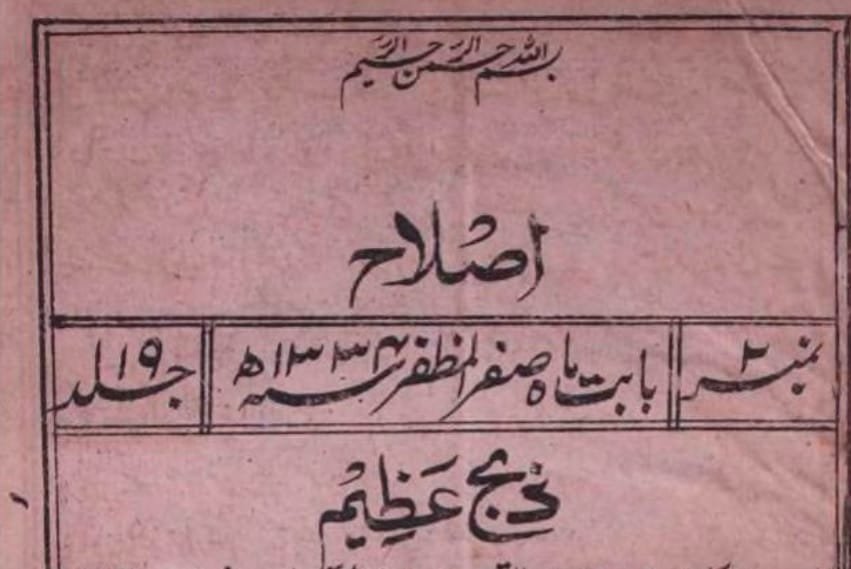 بسم اللہ الرحمن الرحیم
اصلاح
نمبر ۲ بابت ماہ صفر المظفر سنہ ۱۳۳۴ھ جلد ۱۹
ذبح عَظِیْم